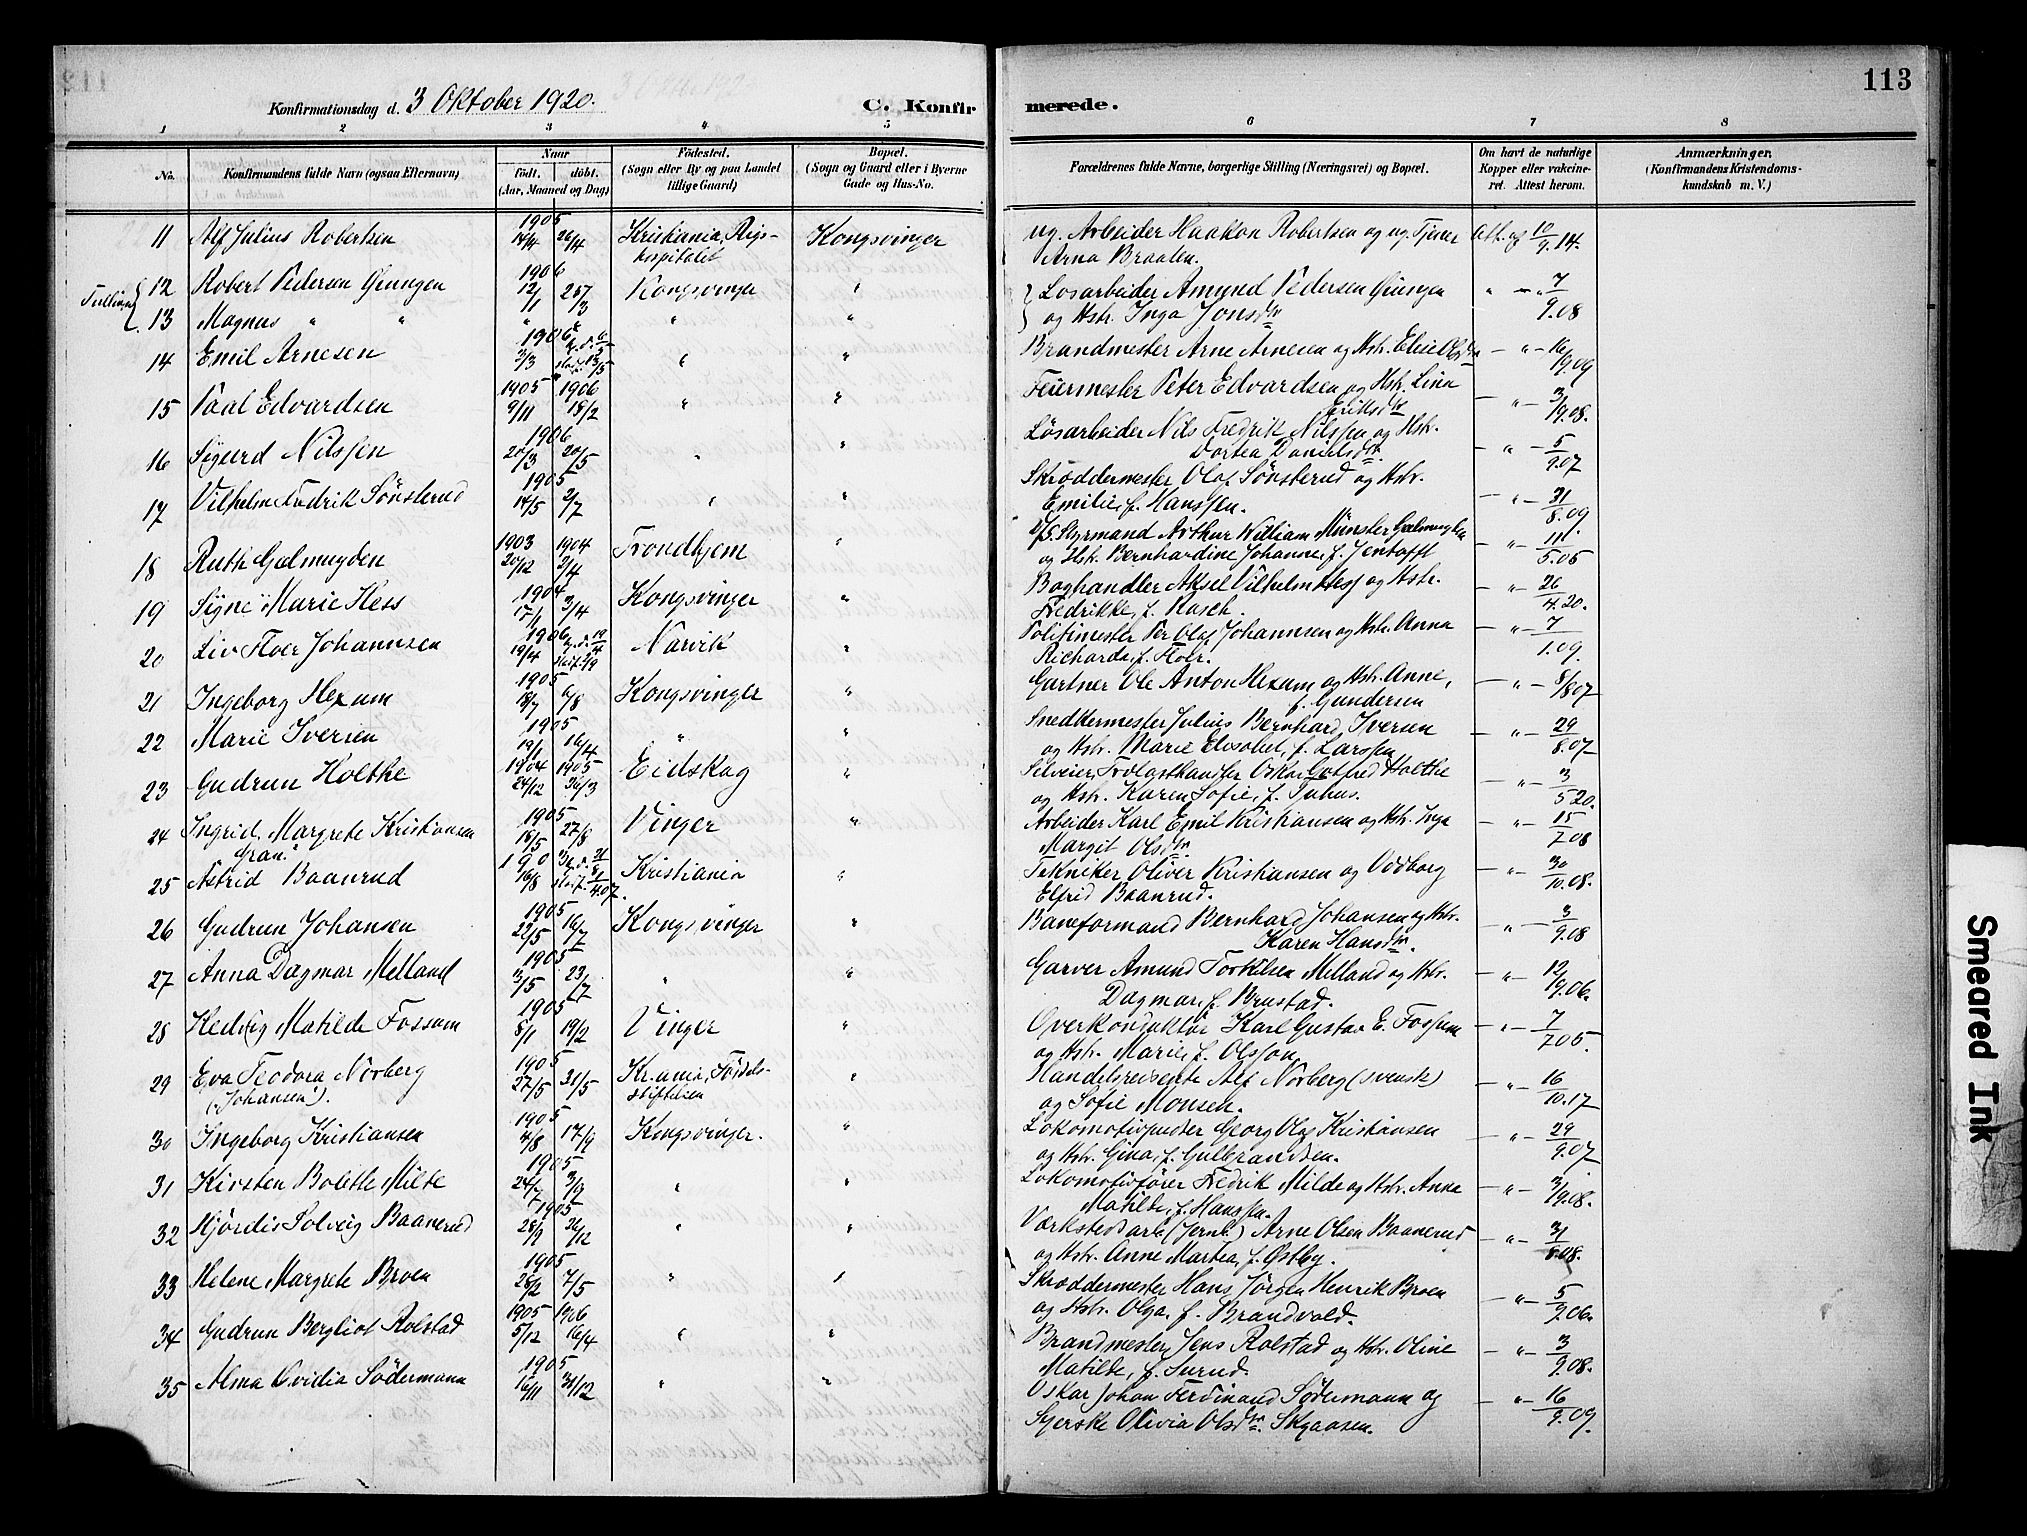 113
Konfirmationsdag d. 3 Oktober 1920.
C. Konfirmerede.
1 2 3 4 5 6 7 8
No. Konfirmandens fulde Navn (ogsaa Efternavn) Naar født. døbt. (Aar, Maaned og Dag) Fødested. (Sogn eller By og paa Landet tillige Gaard) Bopæl. (Sogn og Gaard eller i Byerne Gade og Hus-No. Forældrenes fulde Navne, borgerlige Stilling (Næringsvei) og Bopæl. Om havt de naturlige Kopper eller vakcineret. Attest herom. Anmærkninger. (Konfirmandens Kristendomskundskab m. V.)
11 Alf Julius Robertsen 1905 14/4 26/4 Kristiania, Rigshospitalet Kongsvinger ug. Arbeider Haakon Robertsen og ug. Tjener Arna Braaten. Att. af 10/9.14.
12 Robert Pedersen Gjungen 1906 12/1 25/3 Kongsvinger " Løsarbeider Amund Pedersen Gjungen " — " 7/9.08
13 Magnus " " " " " og Hstr. Inga Jonsdtr
14 Emil Arnesen 1906 3/3 " " Brandmester Arne Arnesen og Hstr. Elise Olsdtr — " — 16/9.09
15 Paal Edvardsen 1905 9/11 1906 18/2 " " Feiermester Peter Edvardsen og Hstr. Lina Eriksdtr — " — 3/9.08.
16 Sigurd Nilssen 1906 20/3 20/5 " " Løsarbeider Nils Fredrik Nilssen og Hstr. Dortea Danielsdtr. — " — 5/9.07
17 Vilhelm Fredrik Sønsterud 1905 14/5 2/7 " " Skræddermester Olaf Sønsterud og Hstr. Emilie, f. Hanssen. — " — 31/8.09
18 Ruth Galmuyden 1903 20/12 1904 2/4 Trondhjem " Styrmand Arthur William Münster Galmuyden og Hstr. Bernhardine Johanne, f. Jentofft — " — 11/5.05
19 Signe Marie Hess 1904 17/1 3/4 Kongsvinger " Boghandler Aksel Vilhelm Hess og Hstr. Fredrikke, f. Rasch. — " — 26/4.20.
20 Liv Floer Johannsen 1906 19/4 Narvik " Politimester Per Olaf Johannsen og Hstr. Anna Richarda, f. Floer. — " — 7/1.09.
21 Ingeborg Hexum 1905 18/7 6/8 Kongsvinger " Gartner Ole Anton Hexum og Hstr. Anne, f. Gundersen — " — 8/8 07
22 Marie Iversen 1905 19/1 16/4 " " Snedkermester Julius Bernhard Iversen og Hstr. Marie Elisabet, f. Larssen — " — 29/8.07
23 Gudrun Holthe 1904 24/12 1905 26/3 Eidskog " Selveier, Trælasthandler Oskar Gotfred Holthe og Hstr. Karen Sofie, f. — " — 3/5 20.
24 Ingrid Margrete Kristiansen Gran. 1905 18/5 27/8 Vinger " Arbeider Karl Emil Kristiansen og Hstr. Inga Margit Olsdtr — " — 15/7 08
25 Astrid Baanrud 190 16/8 Kristiania " Tekniker Oliver Kristiansen og Oddborg Elfrid Baanrud. — " — 30/10.08.
26 Gudrun Johansen 1905 22/5 16/7 Kongsvinger " Baneformand Bernhard Johansen og Hstr. Karen Hansdtr. — " — 3/9.08
27 Anna Dagmar Melland 1905 3/5 23/7 " " Garver Amund Torkilsen Melland og Hstr. Dagmar, f. Brustad. — " — 12/9.06.
28 Hedvig Matilde Fossum 1905 8/1 19/2 Vinger " Overkonduktør Karl Gustav E. Fossum og Hstr. Marie, f. Olsson. — " — 7/7 05.
29 Eva Teodora Norberg (Johansen). 1905 27/5 21/5 Kr.ania, Fødselsstiftelsen " Handelsreisende Alf Norberg (svensk) og Sofie Monsen. — " — 16/10.17
30 Ingeborg Kristiansen 1905 4/8 17/9 Kongsvinger. " Lokomotivpudser Georg Olaf Kristiansen og Hstr. Gina, f. Gulbrandsen. — " — 29/9.07
31 Kirsten Bolette Milde 1905 24/7 3/9 " " Lokomotivfører Fredrik Milde og Hstr. Anna Matilde, f. Hanssen. — " — 3/9.08.
32 Hjørdis Solveig Baanerud 1905 28/9 26/12 " " Værkstedsarb. (Jernb.) Arne Olsen Baanerud og Hstr. Anne Martea, f. Østby. — " — 31/8.08.
33 Helene Margrete Broen 1905 28/2 7/5 " " Skræddermester Hans Jørgen Henrik Broen og Hstr. Olga, f. Brandvold. — " — 5/9.06.
34 Gudrun Bergliot Rolstad 1905 5/12 1906 16/4 " " Brandmester Jens Rolstad og Hstr. Oline Matilde, f. Surud. — " — 3/9.08.
35 Alma Ovidia Södermann 1905 16/11 31/12 " " Oskar Johan Ferdinand Södermann og Syerske Olivia Olsdtr. Skgaasen. — " — 16/9.09
Smeared Ink